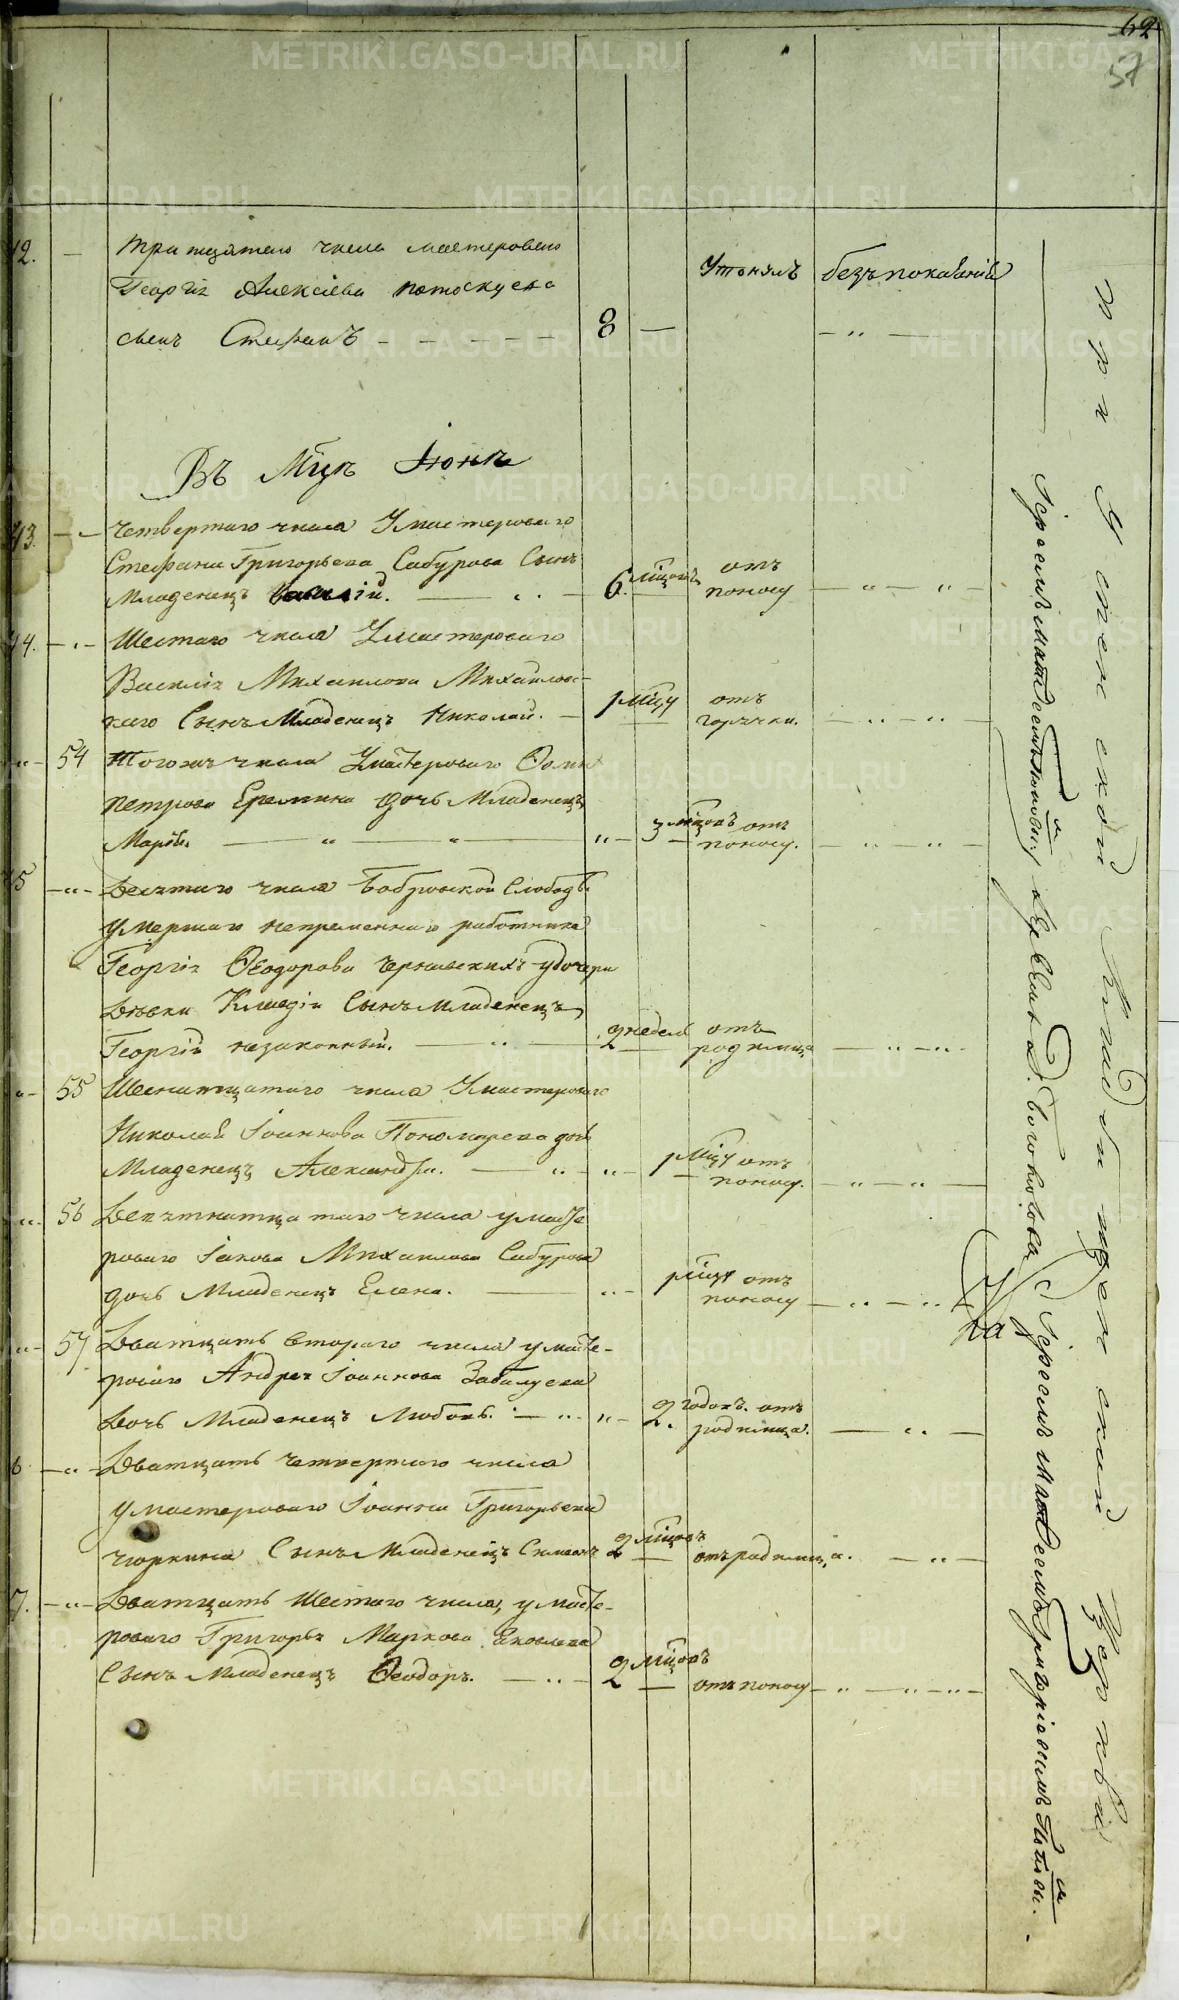 62
57
42. — тритцятаго числа мастероваго
Георгiя Алексiева потоскуева
сынъ Стефанъ — — — — — 8 — Утонулъ безъ покаянiя
Въ Мцѣ Iюнѣ
43. — „ — четвертаго числа Умастероваго
Стефана Григорьева Сабурова Сынъ
Младенецъ Василiй. — 6. мцовъ отъ поносу — „ — „ —
44. — „ — Шестаго числа Умастероваго
Василiя Михаилова Михайловс-
каго Сынъ Младенецъ Николай. — 1 мцу отъ горячки. — „ — „ —
„ — 54 Тогожъ числа Умастероваго Ѳомы
петрова Еремина дочь Младенецъ
Марiя. — „ — „ — „ — 3 мцовъ отъ поносу. — „ — „ —
45 — „ — Десятаго числа Бобровской Слободы
умершаго непременнаго работника
Георгiя Ѳеодорова Чернавскихъ удочери
Дѣвки Клавдiи Сынъ Младенецъ
Георгiй незаконный. — „ — 2 недель отъ родимца — „ — „ —
„ — 55 Шеснатцатаго числа Умастероваго
Николая Iоаннова Пономарева дочь
Младенецъ Александра. — „ — „ — 1 мцу отъ поносу. — „ — „ —
„ — 56 Девятнатцатаго числа умасте
роваго Iакова Михаилова Сабурова
дочь Младенецъ Елена. — „ — 1 мцу отъ поносу — „ — „ —
„ — 57 Дватцать втораго числа умасте-
роваго Андрея Iоаннова Забалуева
Дочь Младенецъ Любовь. — „ — „ — 2. годовъ. отъ родимца. — „ —
6 — „ — Дватцать четвертаго числа
умастероваго Iоанна Григорьева
чюркина Сынъ Младенецъ Симеонъ 2 мцовъ отъ родимца. — „ —
7. — „ — Дватцать Шестаго числа, умасте-
роваго Григорья Маркова Яковлева
Сынъ Младенецъ Ѳеодоръ. — „ — 2 мцовъ отъ поносу — „ — „ — „ —
Iереемъ
На
Iереемъ
при Успенской Кладбищенской Церквѣ